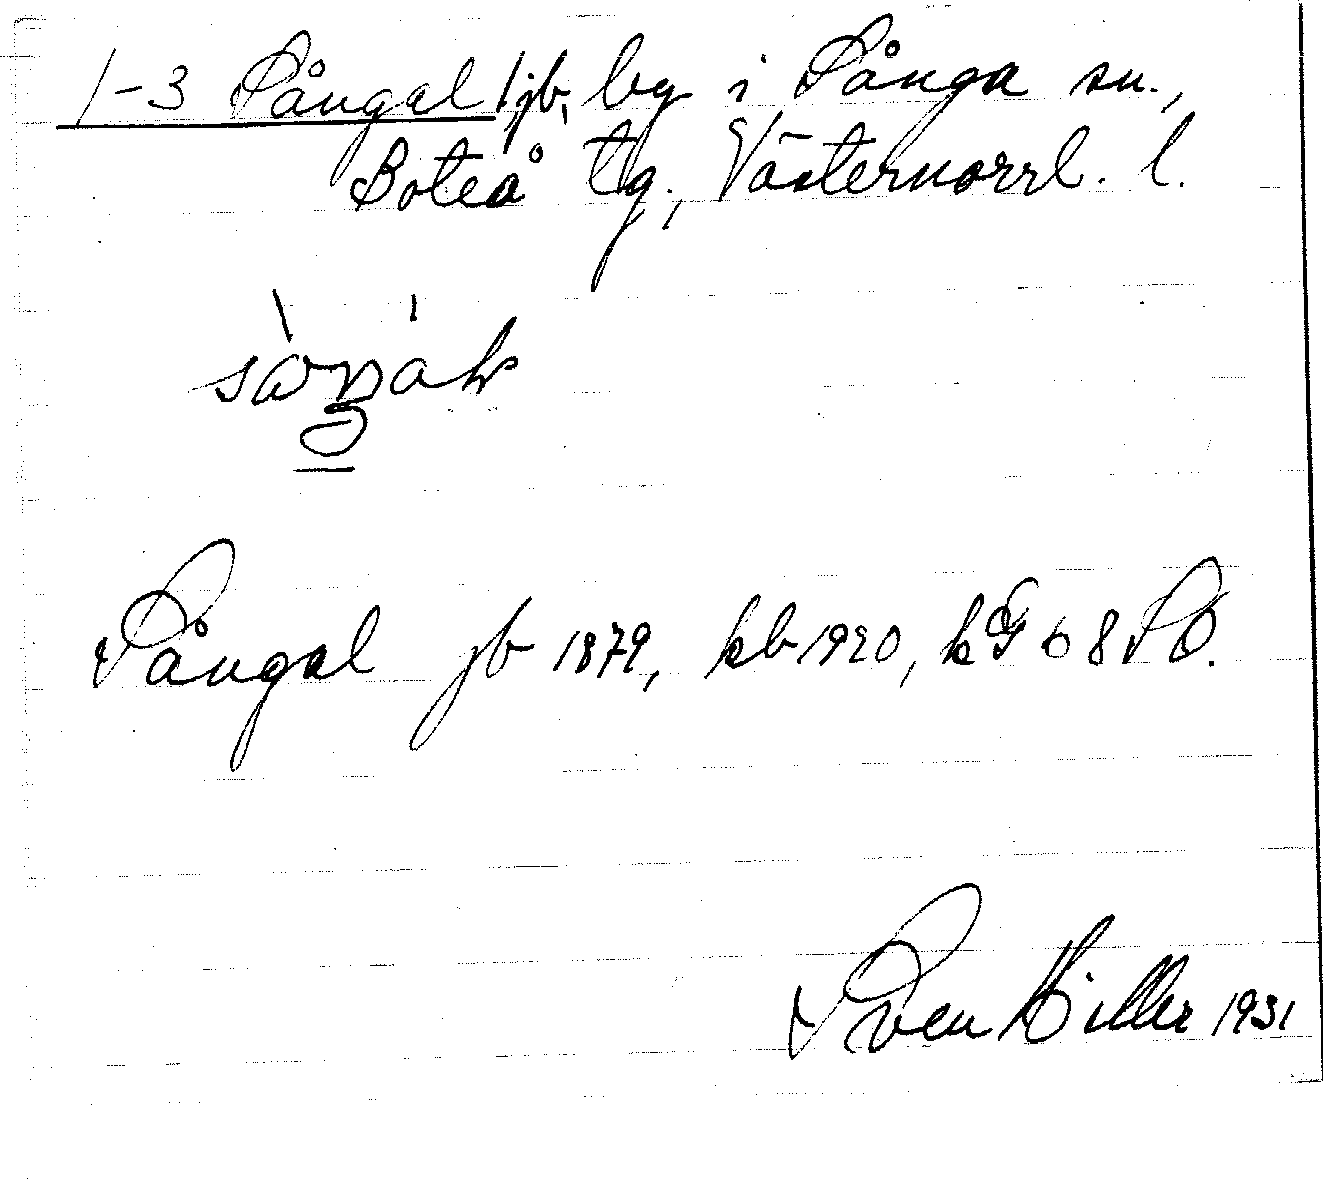 1-3 Sångal /jb, by i Sånga sn.,
Boteå tg, Västernorrl. l.
Sångal jb 1879, kb 1920, kG 68 SO.
Sven Hiller 1931